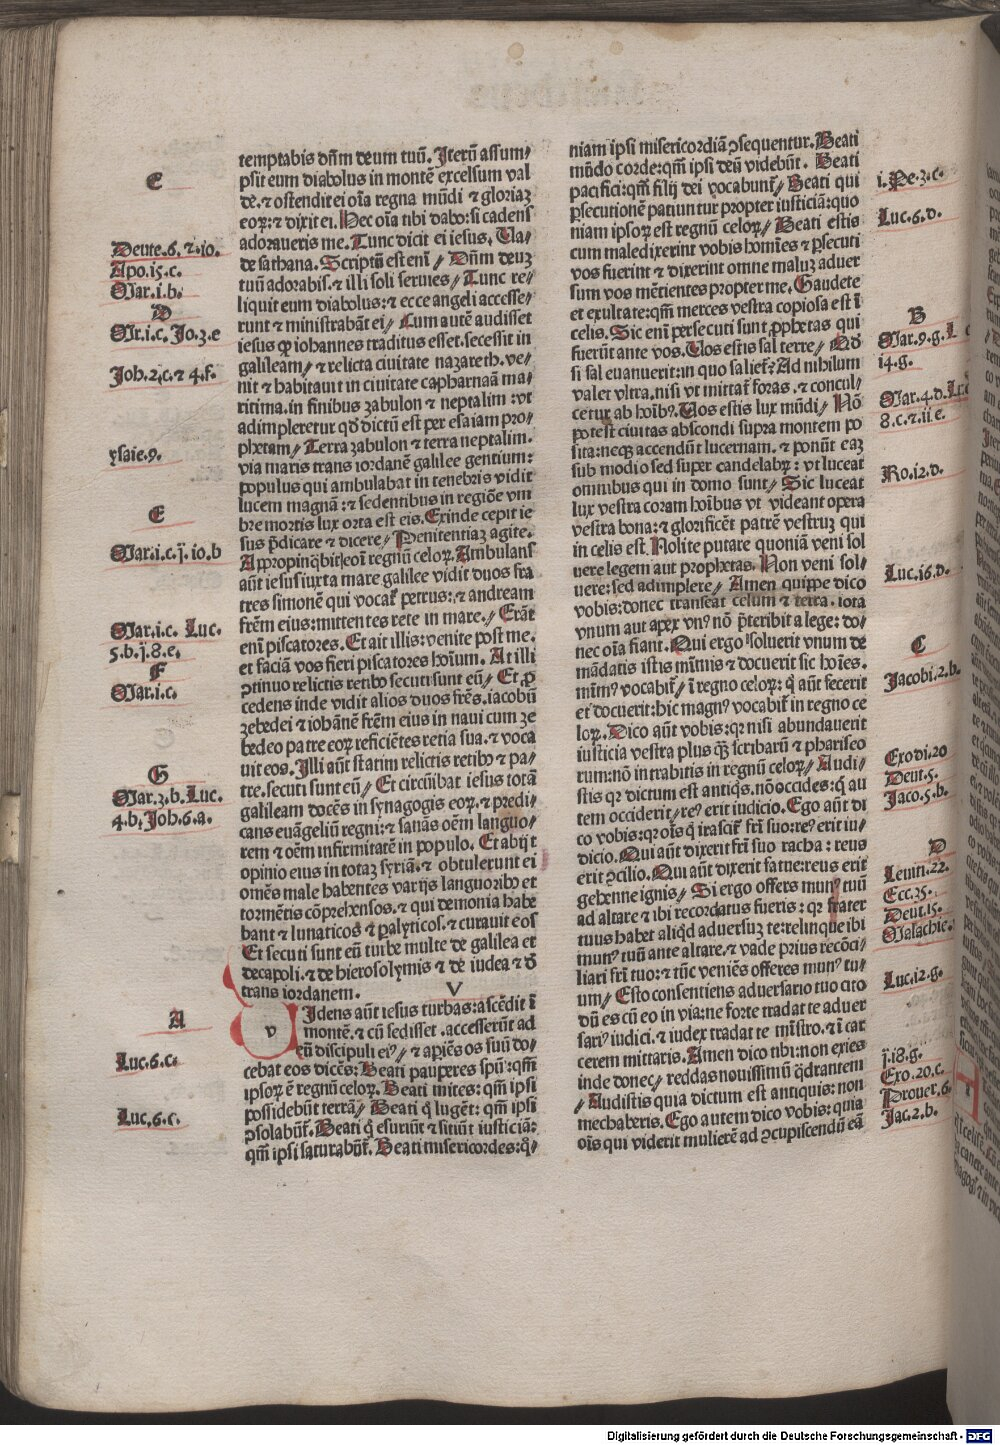 temptabis dñm deum tuũ. Iterũ assum⸗
psit eum diabolus in montẽ excelsum val
de. ⁊ ostendit ei oĩa regna mũdi ⁊ gloriaꝫ
eoꝝ: ⁊ dixit ei. Hec oĩa tibi dabo: si cadens
adoraueris me. Tunc dicit ei iesus. Ua⸗
de sathana. Scriptũ est eni⸗ Dñm deuꝫ
tuũ adorabis. ⁊ illi soli seruies⸗ Tunc re⸗
liquit eum diabolus: ⁊ ecce angeli accesse⸗
runt ⁊ ministrabãt ei⸗ Cum autẽ audisset
iesus ꝙ iohannes traditus esset. secessit in
galileam⸗ ⁊ relicta ciuitate nazareth. ve⸗
nit ⁊ habitauit in ciuitate capharnaũ ma⸗
ritima. in finibus zabulon ⁊ neptalim: vt
adimpleretur qđ dictũ est per esaiam pro⸗
phetam⸗ Terra zabulon ⁊ terra neptalim.
via maris trans iordanẽ galilee gentium:
populus qui ambulabat in tenebris vidit
lucem magnã: ⁊ sedentibus in regiõe vm
bre mortis lux orta est eis. Exinde cepit ie
sus p̃dicare ⁊ dicere⸗ Penitentiaꝫ agite.
Appropinq̃bit eni regnũ celoꝝ. Ambulans
aũt iesus iuxta mare galilee vidit duos fra
tres simonẽ qui vocat̃ petrus: ⁊ andream
frẽm eius: mittentes rete in mare⸗ Erãt
eni piscatores. Et ait illis: venite post me.
et faciã vos fieri piscatores hoĩum. At illi
ꝓtinuo relictis retibꝰ secuti sunt eũ⸗ Et ꝓ
cedens inde vidit alios duos frẽs. iacobũ
zebedei ⁊ iohãnẽ frẽm eius in naui cum ze
bedeo patre eoꝝ reficiẽtes retia sua. ⁊ voca
uit eos. Illi aũt statim relictis retibꝰ ⁊ pa⸗
tre. secuti sunt eũ⸗ Et circũibat iesus totã
galileam docẽs in synagogis eoꝝ. ⁊ predi⸗
cans euãgeliũ regni: ⁊ sanãs oẽm languo⸗
rem ⁊ oẽm infirmitatẽ in populo. Et abijt
opinio eius in totaꝫ syriã. ⁊ obtulerunt ei
omẽs male habentes varijs languoribꝰ et
tormẽtis cõprehensos. ⁊ qui demonia habe
bant ⁊ lunaticos ⁊ palyticos. ⁊ curauit eos
Et secuti sunt eũ turbe multe de galilea et
decapoli. ⁊ de hierosolymis ⁊ de iudea ⁊ đ
trans iordanem. V
v Idens aũt iesus turbas: ascẽdit ĩ
montẽ. ⁊ cũ sedisset. accesserũt ad
eũ discipuli eiꝰ⸗ ⁊ apiẽs os suũ do⸗
cebat eos dicẽs: Beati pauperes spũ: qm̃
ipsoꝝ ẽ regnũ celoꝝ. Beati mites: qm̃ ipsi
possidebũt terrã⸗ Beati q̃ lugẽt: qm̃ ipsi
ꝯsolabũt̃. Beati q̃ esuriũt ⁊ sitiũt iusticiã:
qm̃ ipsi saturabũt̃. Beati misericordes: q̃⸗
niam ipsi misericordiã ꝯsequentur. Beati
mũdo corde: qm̃ ipsi deũ videbũt. Beati
pacifici: qm̃ filij dei vocabunt̃⸗ Beati qui
ꝑsecutionẽ patiuntur propter iusticiã: quo
niam ipsoꝝ est regnũ celoꝝ⸗ Beati estis
cum maledixerint vobis homĩes ⁊ ꝑsecuti
vos fuerint ⁊ dixerint omne maluꝫ aduer
sum vos mẽtientes propter me. Gaudete
et exultate: qm̃ merces vestra copiosa est ĩ
celis. Sic eni persecuti sunt ꝓphetas qui
fuerũt ante vos. Uos estis sal terre⸗ Qđ
si sal euanuerit: in quo saliet̃? Ad nihilum
valet vltra. nisi vt mittat̃ foras. ⁊ concul⸗
cetur ab hoĩbꝰ. Uos estis lux mũdi⸗ Nõ
potest ciuitas abscondi supra montem po
sita: neqꝫ accendũt lucernam. ⁊ ponũt eaꝫ
sub modio sed super candelabꝝ: vt luceat
omnibus qui in domo sunt⸗ Sic luceat
lux vestra coram hoĩbus vt videant opera
vestra bona: ⁊ glorificẽt patrẽ vestruꝫ qui
in celis est. Nolite putare quoniã veni sol
uere legem aut prophetas. Non veni sol⸗
uere: sed adimplere⸗ Amen quippe dico
vobis: donec transeat celum ⁊ terra. iota
vnum aut apex vnꝰ nõ p̃teribit a lege: do⸗
nec oĩa fiant. Qui ergo soluerit vnum de
mãdatis istis mĩmis ⁊ docuerit sic hoĩes.
mĩmꝰ vocabit̃⸗ ĩ regno celoꝝ: q̃ aũt fecerit
et docuerit: hic magnꝰ vocabit̃ in regno ce
loꝝ. Dico aũt vobis: qꝛ nisi abundauerit
iusticia vestra plus q̃ꝫ scribarũ ⁊ phariseo
rum: nõ intrabitis in regnũ celoꝝ⸗ Audi⸗
stis qꝛ dictum est antiqs. nõ occides: q̃ au
tem occiderit⸗ reꝰ erit iudicio. Ego aũt di
co vobis: qꝛ oĩs q̃ irascit̃ frĩ suo: reꝰ erit iu⸗
dicio. Qui aũt dixerit frĩ suo racha: reus
erit ꝯcilio. Qui aũt dixerit fatue: reus erit
gehenne ignis⸗ Si ergo offers munꝰ tuũ
ad altare ⁊ ibi recordatus fueris: qꝛ frater
tuus habet aliq̃d aduersuꝫ te: relinque ibi
munꝰ tuũ ante altare. ⁊ vade prius recõci⸗
liari frĩ tuo: ⁊ tũc veniẽs offeres munꝰ tu⸗
um⸗ Esto consentiens aduersario tuo cito
dũ es cũ eo in via: ne forte tradat te aduer
sariꝰ iudici. ⁊ iudex tradat te mĩstro. ⁊ ĩ car
cerem mittaris. Amen dico tibi: non exies
inde donec⸗ reddas nouissimũ q̃drantem
⸗ Audistis quia dictum est antiquis: non
mechaberis. Ego autem dico vobis: quia
oĩs qui viderit mulierẽ ad ꝯcupiscendũ eã
E
Deute.6.⁊.10.
Apo.15.c.
Mar.i.b.
D
Mr.i.c. Jo.3.e
Joh.2.c.⁊ 4.f.
ysaie.9.
E
Mar.i.c.ij.io.b
Mar.i.c. Luc.
5.b.ij.8.e.
F
Mar.i.c.
G
Mar.3.b. Luc.
4.b. Joh.6.a.
A
Luc.6.c.
Luc.6.c.
i.Pe.3.c.
Luc.6.d.
B
Mar.9.g. L
i4.g.
Mar.4.d. Lu.
8.c.⁊.ii e.
Ro.i2.d.
Luc.i6.d.
C
Jacobi.2.b.
Exodi.20
Deut.5.
Jaco.5.b.
D
Leuiti.22.
Ecc.35.
Deut.15.
Malachie.
Luc.i2.g.
ij.i8.g.
Exo.20.c.
Prouer.6.
Jac.2.b.
Digitalisierung gefördert durch die Deutsche Forschungsgemeinschaft - DFG